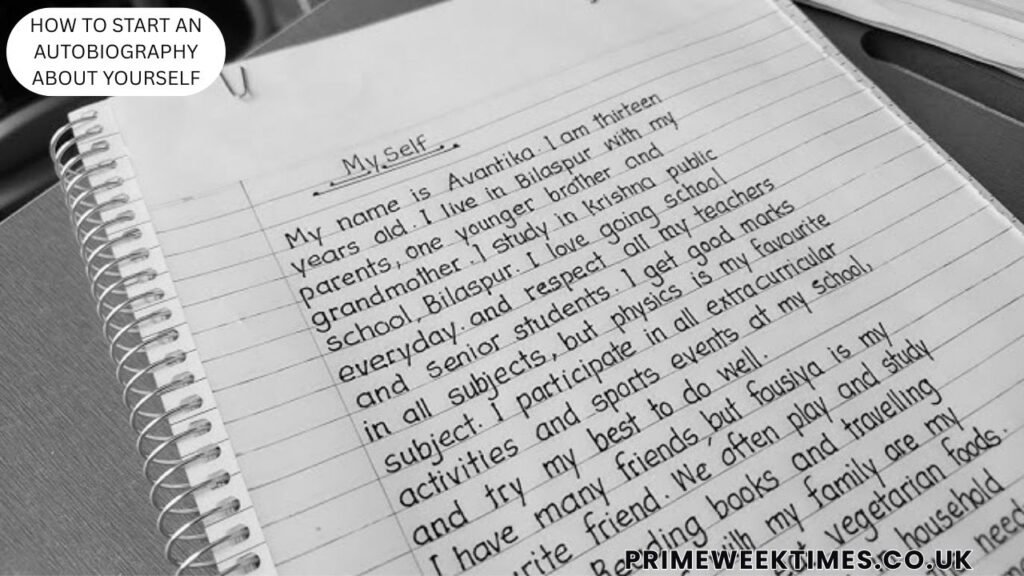 HOW TO START AN
AUTOBIOGRAPHY
ABOUT YOURSELF
My Self
My name is Avantika. I am thirteen
years old. I live in Bilaspur with my
parents, one younger brother and
grandmother. I study in Krishna public
school, Bilaspur. I love going school
everyday. and respect all my teachers
and senior students. I get good marks
in all subjects, but physics is my favourite
subject. I participate in all extracurricular
activities and sports events at my school,
and try my best to do well.
I have many friends, but fousiya is my
rite friend. We often play and study
Reading books and travelling
with my family are my
vegetarian foods.
household
need
PRIMEWEEKTIMES.CO.UK